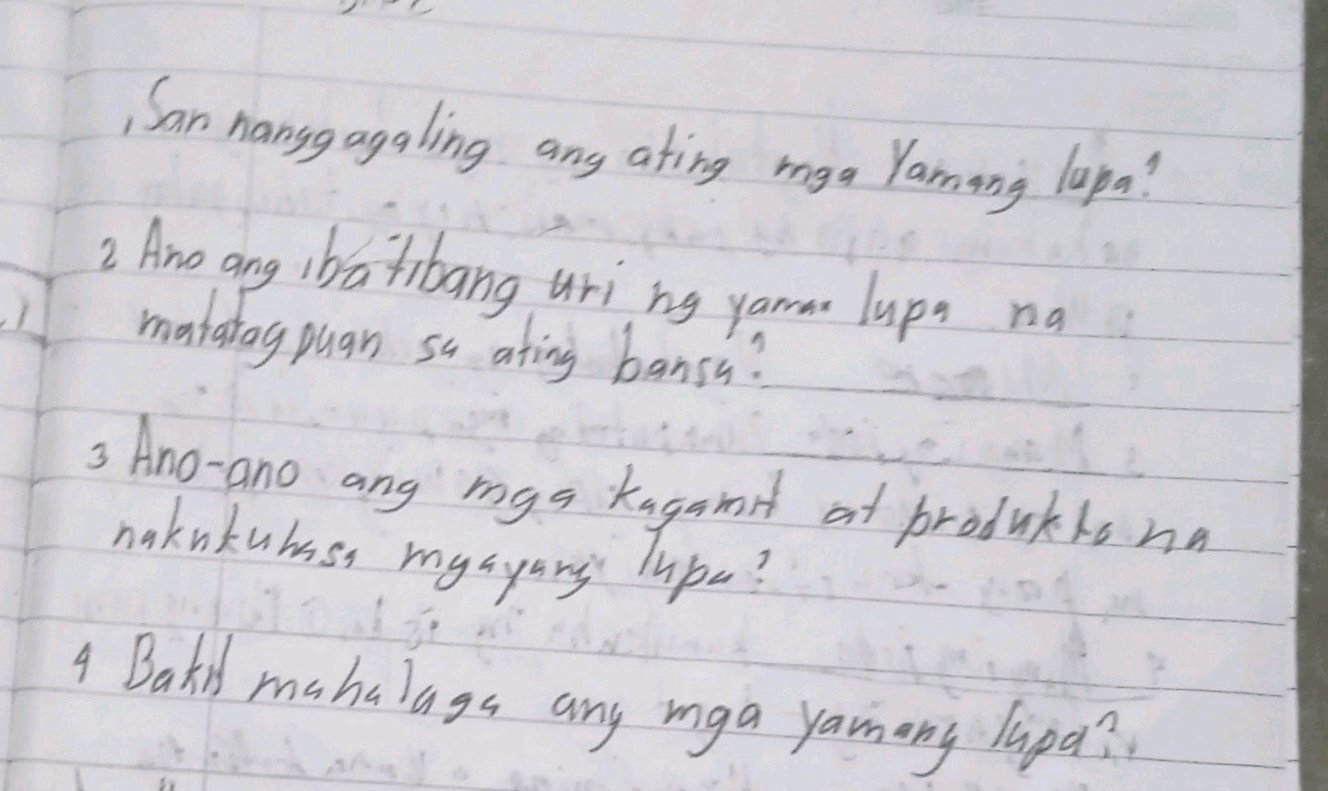 1 San nanggagaling ang ating mga Yamang lupa?
2 Ano ang iba'tibang uri ng yaman lupa na
matatagpuan sa ating bansa?
3 Ano-ano ang mga kagamit at produkto na
nakukuhasa mgayang lupa?
4 Bakit mahalaga ang mga yamang lupa?